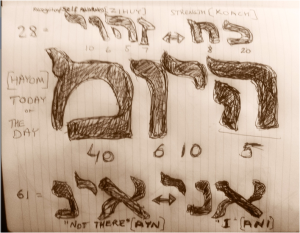 [ZIHUY] STRENGTH [KOACH]
28 = זהוי ↔ כח
10 6 5 7 8 20
[HAYOM]
TODAY
or
THE
DAY
היומ
40 6 10 5
61 = אינ ↔ אני
"NOT THERE" [AYN] "I" [ANI]